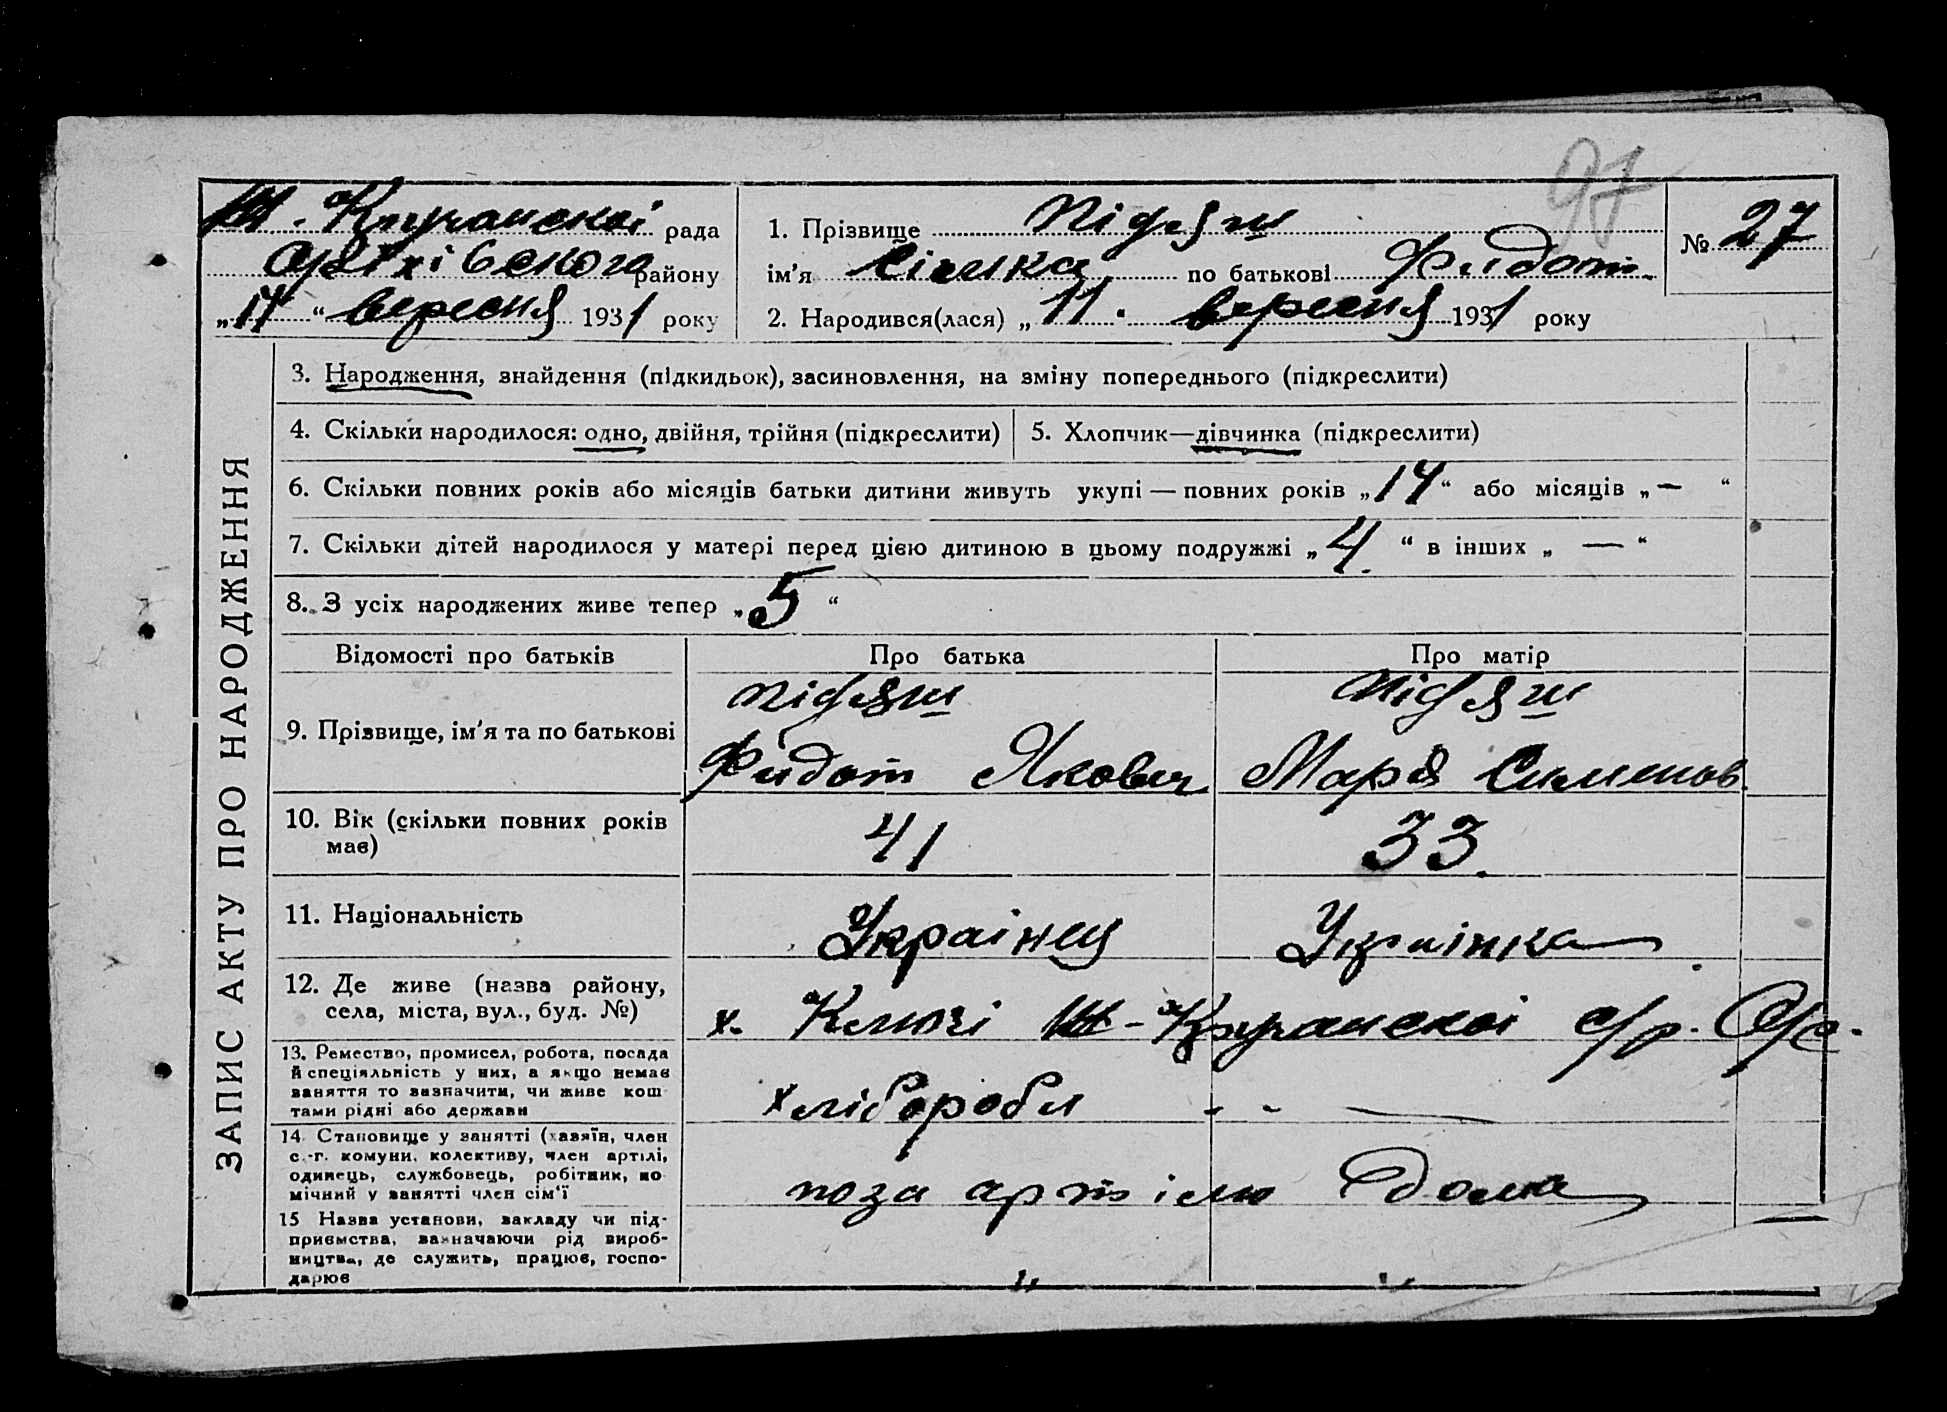 97
Ш. Кнуранскої рада
Оріхівського району
„14“ вересня 1931 року
1. Прізвище Підряш
ім'я по батькові Фидот.
2. Народився(лася) „11. вересня 1931 року
№ 27
ЗАПИС АКТУ ПРО НАРОДЖЕННЯ
3. Народження, знайдення (підкидьок), засиновлення, на зміну попереднього (підкреслити)
4. Скільки народилося: одно, двійня, трійня (підкреслити)
5. Хлопчик—дівчинка (підкреслити)
6. Скільки повних років або місяців батьки дитини живуть укупі — повних років „14“ або місяців „—“
7. Скільки дітей народилося у матері перед цією дитиною в цьому подружжі „4.“ в інших „—“
8. З усіх народжених живе тепер „5“
Відомості про батьків Про батька Про матір
9. Прізвище, ім'я та по батькові
Фидот Якович
Марія Сименов.
10. Вік (скільки повних років має)
41 33.
11. Національність
Українец Українка
12. Де живе (назва району,
села, міста, вул., буд. №)
х. Ключі с/р.
13. Ремество, промисел, робота, посада
й спеціяльність у них, а якщо немає
заняття то зазначити, чи живе кош-
тами рідні або держави
хлібороби - - —
14. Становище у занятті (хазяїн, член
с.-г. комуни, колективу, член артілі,
одинець, службовець, робітник, по-
мічний у занятті член сім'ї
поза артілю Єдома
15 Назва установи, закладу чи під-
приємства, зазначаючи рід вироб-
ництва, де служить, працює, госпо-
дарює